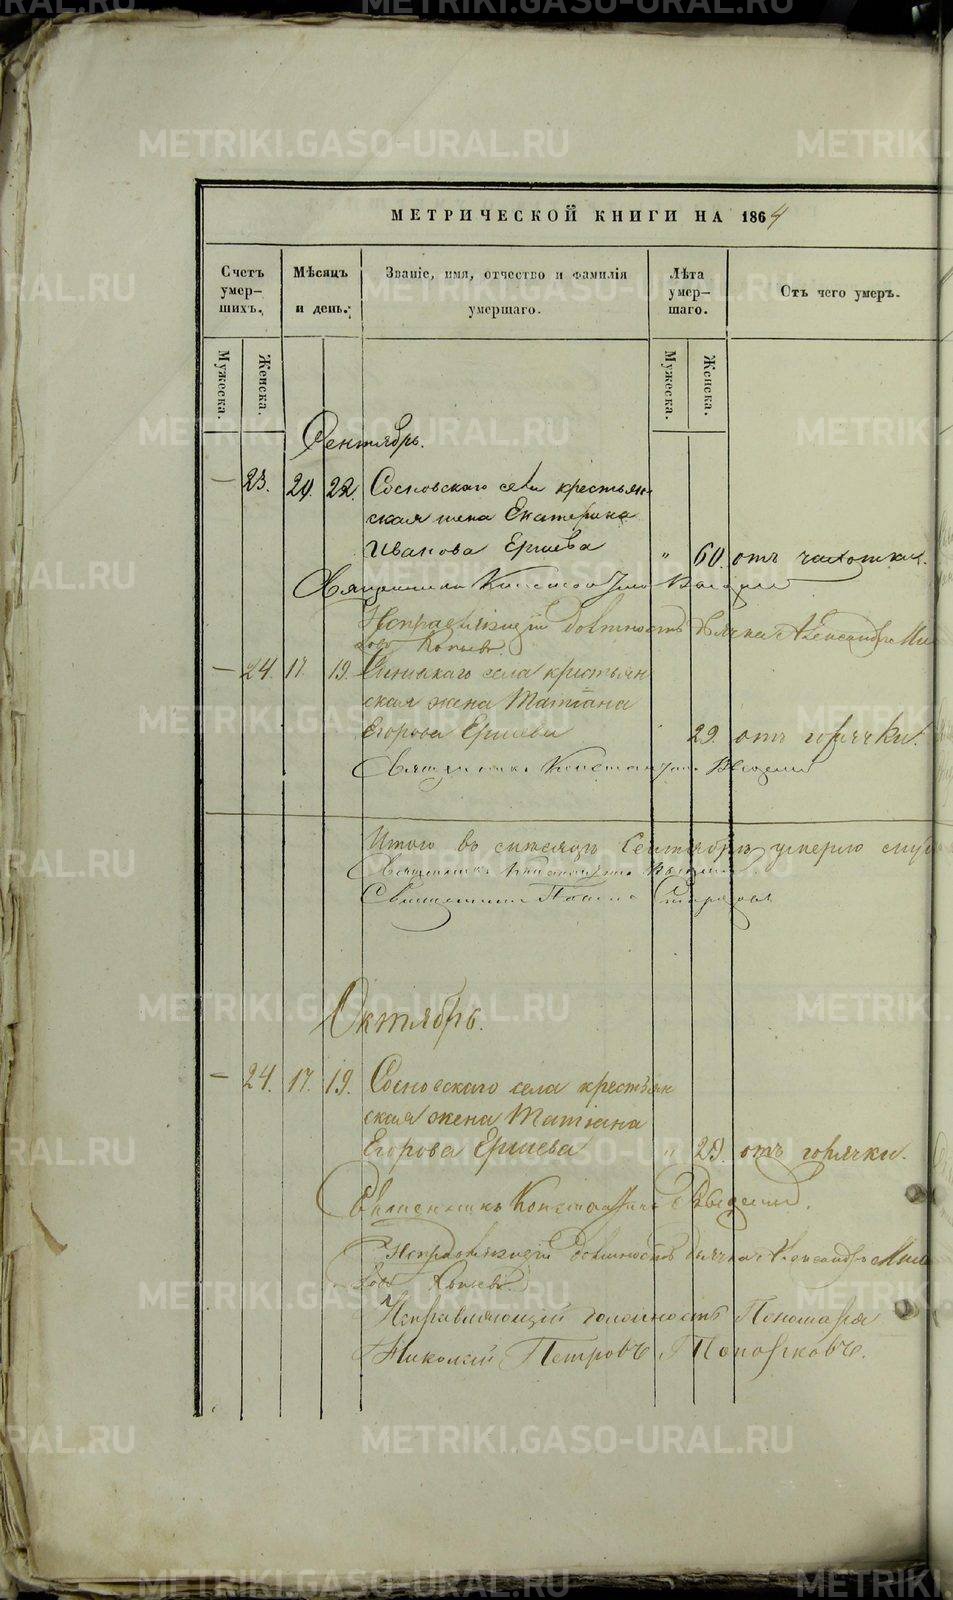 МЕТРИЧЕСКОЙ КНИГИ НА 1864
Счетъ умер-шихъ.
Мѣсяцъ и день.
Званіе, имя, отчество и фамилія умершаго.
Лѣта умер-шаго.
Отъ чего умеръ.
Мужеска.
Женска.
Мужеска.
Женска.
Сентябрь.
— 23. 20. 22. Сосновскаго села крестьян-
ская жена Екатерина
Иванова Ершева " 60. отъ чахотки.
Священникъ Константинъ
Исправляющій должность дьячка Александръ
— 24. 17. 19. села крестьян
ская жена Татіана
Егорова Ершева 29. отъ горячки.
Священникъ Константинъ
Итого въ мѣсяцѣ Сентябрѣ умерло
Священникъ Константинъ
Священникъ
Октябрь.
— 24. 17. 19. Сосновскаго села крестьян
ская жена Татіана
Егорова Ершева " 29. отъ горячки.
Священникъ Константинъ
Исправляющій должность дьячка Александръ
Исправляющій должность Пономаря
Николай Петровъ Топорковъ.
METRIKI.GASO-URAL.RU